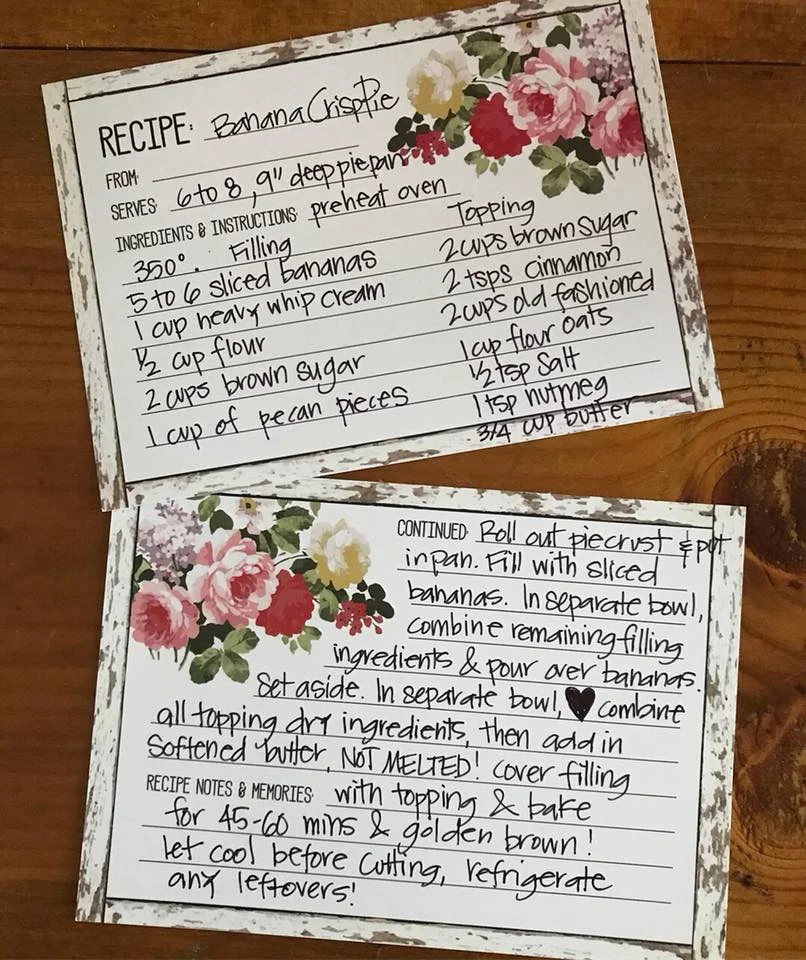 RECIPE: Banana Crisp Pie
FROM:
SERVES: 6 to 8, 9" deep pie pan
INGREDIENTS & INSTRUCTIONS: preheat oven
350°. Filling
5 to 6 sliced bananas
1 cup heavy whip cream
1/2 cup flour
2 cups brown sugar
1 cup of pecan pieces
Topping
2 cups brown sugar
2 tsps cinnamon
2 cups old fashioned
oats
1 cup flour
1/2 tsp salt
1 tsp nutmeg
3/4 cup butter
CONTINUED: Roll out piecrust & put
in pan. Fill with sliced
bananas. In separate bowl,
combine remaining filling
ingredients & pour over bananas.
Set aside. In separate bowl, ♥ combine
all topping dry ingredients, then add in
softened butter, NOT MELTED! Cover filling
RECIPE NOTES & MEMORIES: with topping & bake
for 45-60 mins & golden brown!
Let cool before cutting, refrigerate
any leftovers!